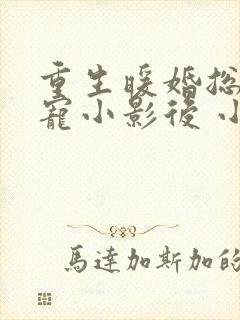 重生暖婚总
宠小影後 小
馬達加斯加的